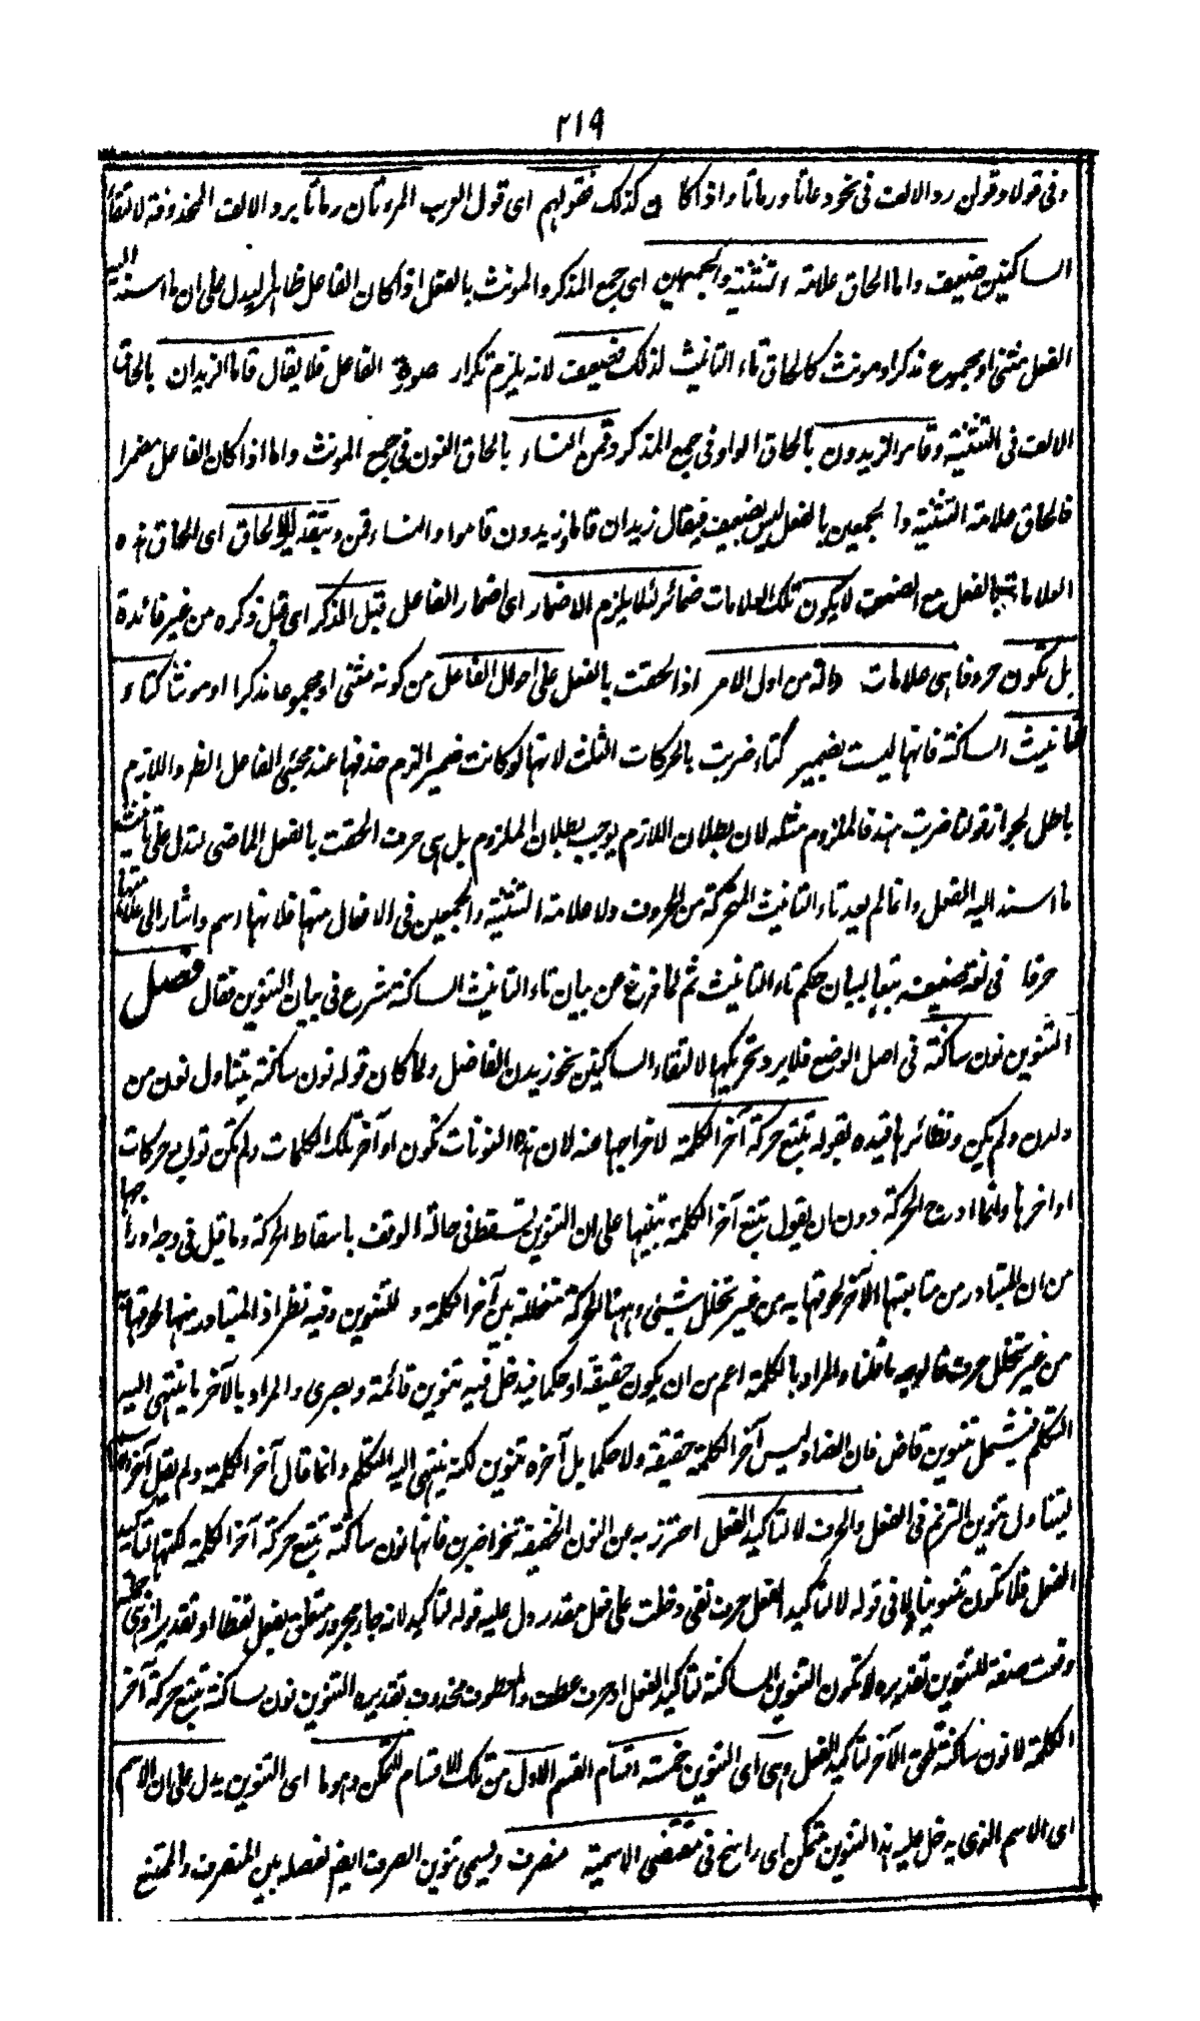 ٢١٩
وفى قولا وقولن رد الالف فى نحو دعاتا ورماتا واذا كا ن كذلك فقولهم اى قول العرب المرءتان رماتا برد الالف المحذوفة لالتقاء
الساكنين ضعيف واما الحاق علامة التثنية والجمعين اى جمع المذكر والمونث بالفعل اذا كان الفاعل ظاهرا ليدل على ان ما اسند اليه
الفعل مثنى او مجموع مذكر او مونث كالحاق تاء التانيث لذلك فضعيف لانه يلزم تكرار صورة الفاعل فلا يقال قاما الزيدان بالحاق
الالف فى التثنية وقاموا الزيدون بالحاق الواو فى جمع المذكر وقمن النساء بالحاق النون فى جمع المونث واما اذا كان الفاعل مضمرا
فالحاق علامة التثنية وا لجمعين بالفعل ليس بضعيف فيقال زيدان قاما وزيدون قاموا والنساء قمن وبتقدير الالحاق اى الحاق هذه
العلامات بالفعل مع الضعف لا يكون تلك العلامات ضمائر لئلا يلزم الاضمار اى اضمار الفاعل قبل الذكر اى قبل ذكره من غير فائدة
بل تكون حروفا اى علامات دالة من اول الامر اذا لحقت بالفعل على احوال الفاعل من كونه مثنى او مجموعا مذكرا او مونثا كتاء
التانيث الساكنة فانها ليست بضمير كتاء ضربت بالحركات الثلث لانها لو كانت ضميرا لزم حذفها عند مجئ الفاعل الظاهر واللازم
باطل لجواز قولنا ضربت هند فالملزوم مثله لان بطلان اللازم يوجب بطلان الملزوم بل هى حرف الحقت بالفعل الماضى لتدل على تانيث
ما اسند اليه الفعل وانما لم يعد تاء التانيث المتحركة من الحروف ولا علامة التثنية والجمعين فى الافعال منها فلانها اسم واشار الى
حرفا فى لغة ضعيفة تبعا لبيان حكم تاء التانيث ثم لما فرغ من بيان تاء التانيث الساكنة شرع فى بيان التنوين فقال فصل
التنوين نون ساكنة فى اصل الوضع فلا يرد تحريكها لالتقاء الساكنين نحو زيدن الفاضل ولما كان قوله نون ساكنة يتناول نون من
ولدن ولم يكن ونظائرها قيده بقوله تتبع حركة آخر الكلمة لاخراجها عنه لان هذه النونات تكون اواخر تلك الكلمات ولم تكن توابع حركات
اواخرها وانما ادرج الحركة دون ان يقول تتبع آخر الكلمة تنبيها على ان التنوين تسقط فى حالة الوقف باسقاط الحركة وما قيل فى وجه ادراجها
من ان المتبادر من متابعتها الآخر لحوقها به من غير تخلل شيئ وههنا الحركة متخللة بين آخر الكلمة و التنوين وفيه نظر اذ المتبادر منها لحوقها
من غير تخلل حرف فالوجه ما قلنا والمراد بالكلمة اعم من ان يكون حقيقة او حكما فيدخل فيه تنوين قائمة وبصرى والمراد بالآخر ما ينتهى اليه
التكلم فيشمل تنوين قاض فان الضاد ليس آخر الكلمة حقيقة ولا حكما بل آخره تنوين لكنه ينتهى اليه التكلم وانما قال آخر الكلمة ولم يقل آخر الاسم
ليتناول تنوين الترنم فى الفعل والحرف لا لتاكيد الفعل احترز به عن النون الخفيفة نحو اضربن فانها نون ساكنة تتبع حركة آخر الكلمة لكنها لتاكيد
الفعل فلا تكون تنوينا ولا فى قوله لا لتاكيد الفعل حرف نفى دخلت على فعل مقدر دل عليه قوله لتاكيد لانه جار ومجرور متعلق بفعل لفظا او تقديرا
وقعت صفة للتنوين تقديره لا تكون التنوين الساكنة لتاكيد الفعل او حرف عطف والمعطوف محذوف تقديره التنوين نون ساكنة تتبع حركة آخر
الكلمة لا نون ساكنة تلحق الآخر لتاكيد الفعل وهى اى التنوين خمسة اقسام القسم الاول من تلك الاقسام للتمكن وهو ما اى التنوين يدل على ان الاسم
اى الاسم الذى يدخل عليه هذا التنوين متمكن اى راسخ فى مقتضى الاسمية منصرف ويسمى تنوين الصرف ايضا لفصله بين المنصرف والممتنع